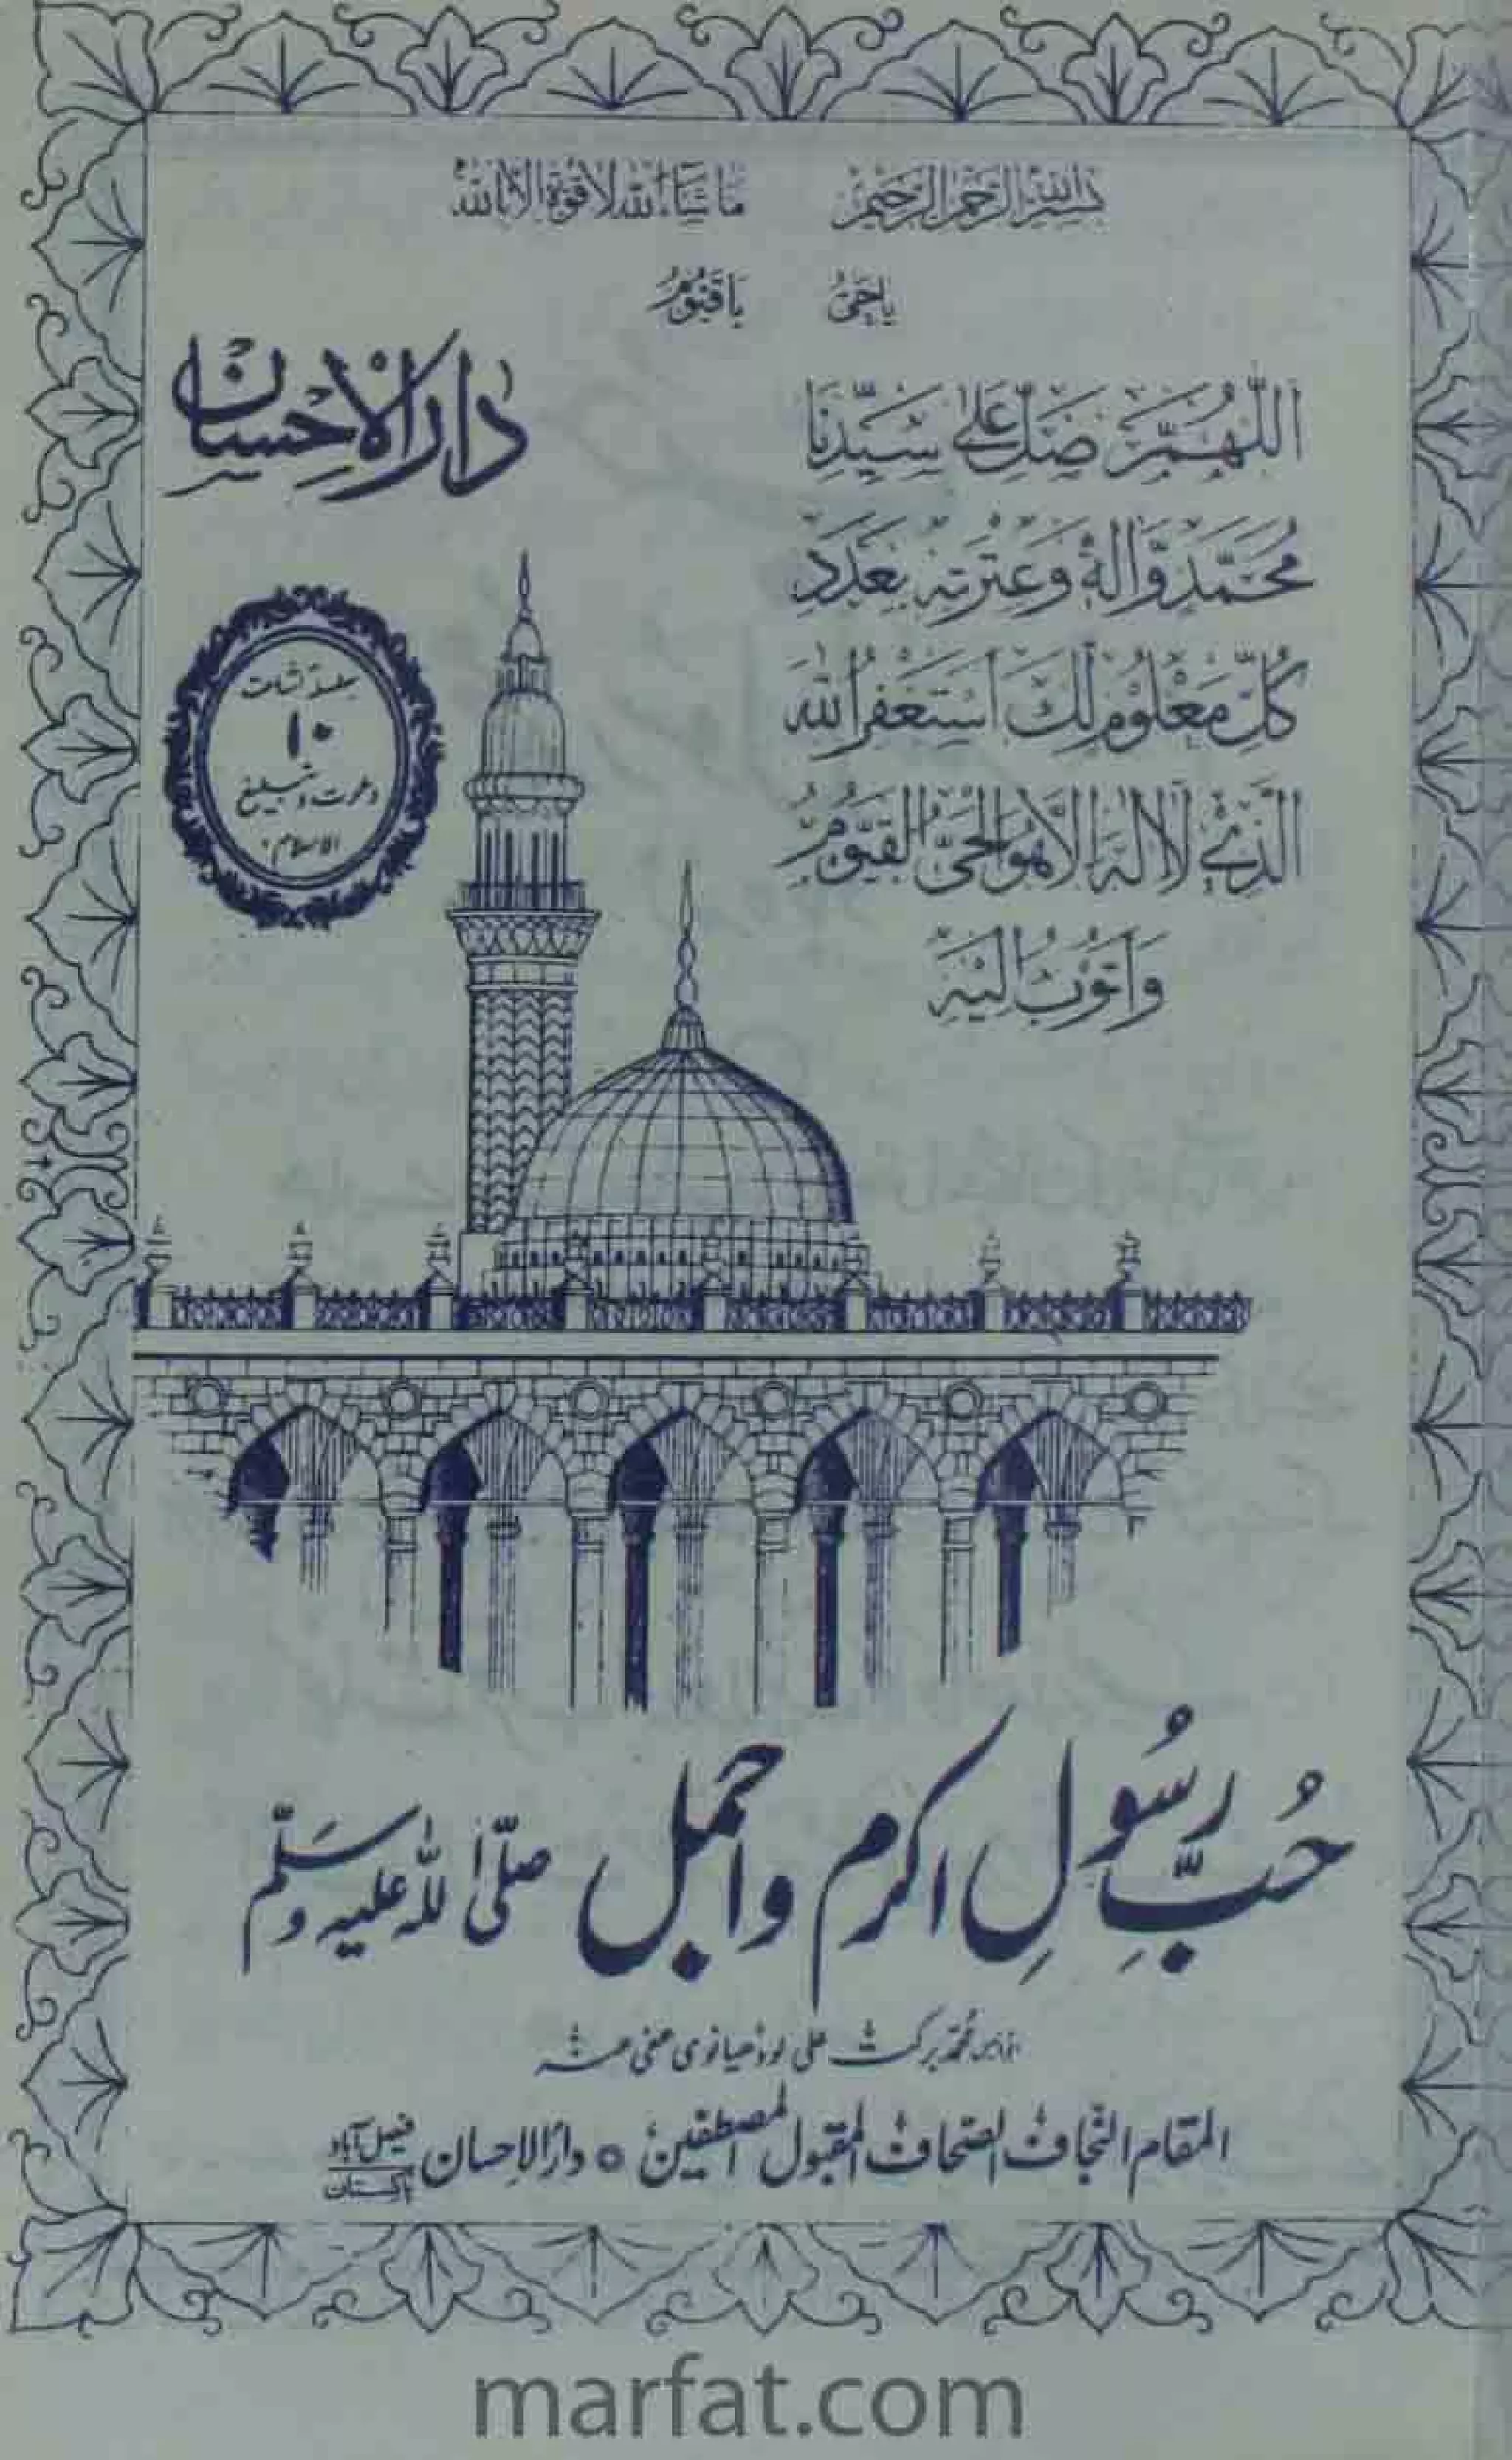 بِسْمِ اللهِ الرَّحْمٰنِ الرَّحِيْمِ مَا شَآءَ اللهُ لَا قُوَّةَ اِلَّا بِاللهِ
يَا حَيُّ يَا قَيُّوْمُ
دارالاحسان
اَللّٰهُمَّ صَلِّ عَلٰی سَيِّدِنَا
مُحَمَّدٍ وَّاٰلِهٖ وَعِتْرَتِهٖ بِعَدَدِ
كُلِّ مَعْلُوْمٍ لَّكَ اَسْتَغْفِرُ اللهَ
الَّذِيْ لَا اِلٰهَ اِلَّا هُوَ الْحَيُّ الْقَيُّوْمُ
وَاَتُوْبُ اِلَيْهِ
سلسلۂ اشاعت
۱۰
دعوت و تبلیغ
الاسلام
حُبِّ رسُولِ اکرم و اجمل صلّی اللہ علیہ وسَلّم
محمّد برکت علی لودھیانوی عفی عنہ
المقام النجاف الصحاف المقبول المصطفین ○ دارالاحسان فیصل آباد
پاکستان
marfat.com